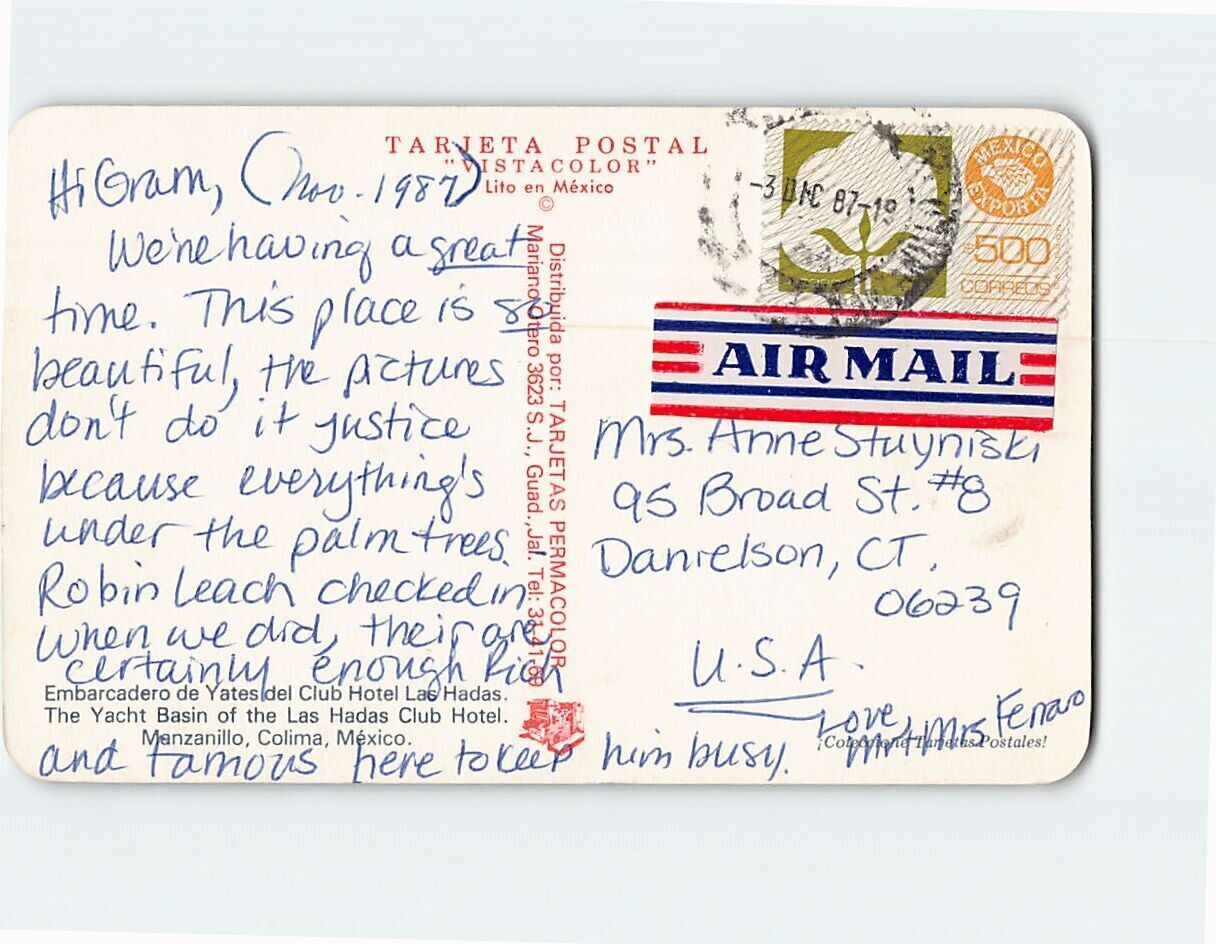 TARJETA POSTAL
"VISTACOLOR"
Lito en México
©
Hi Gram, (Nov. 1987)
We're having a great
time. This place is so
beautiful, the pictures
don't do it justice
because everything's
under the palm trees.
Robin Leach checked in
when we did, their are
certainly enough Rich
and famous here to keep him busy.
Love,
Mr + Mrs Ferraro
Embarcadero de Yates del Club Hotel Las Hadas.
The Yacht Basin of the Las Hadas Club Hotel.
Manzanillo, Colima, México.
Distribuida por: TARJETAS PERMACOLOR
Mariano Otero 3623 S.J., Guad., Jal. Tel: 31-41-69
-3 DIC 87-19
MEXICO
EXPORTA
$500
CORREOS
AIR MAIL
Mrs. Anne Stuyniski
95 Broad St. #8
Danielson, CT.
06239
U.S.A.
¡Coleccione Tarjetas Postales!